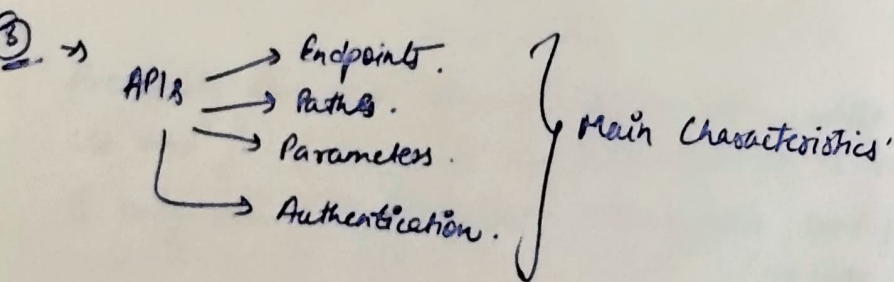 3 →
APIs → Endpoints.
→ Paths.
→ Parameters.
→ Authentication.
} Main Characteristics.